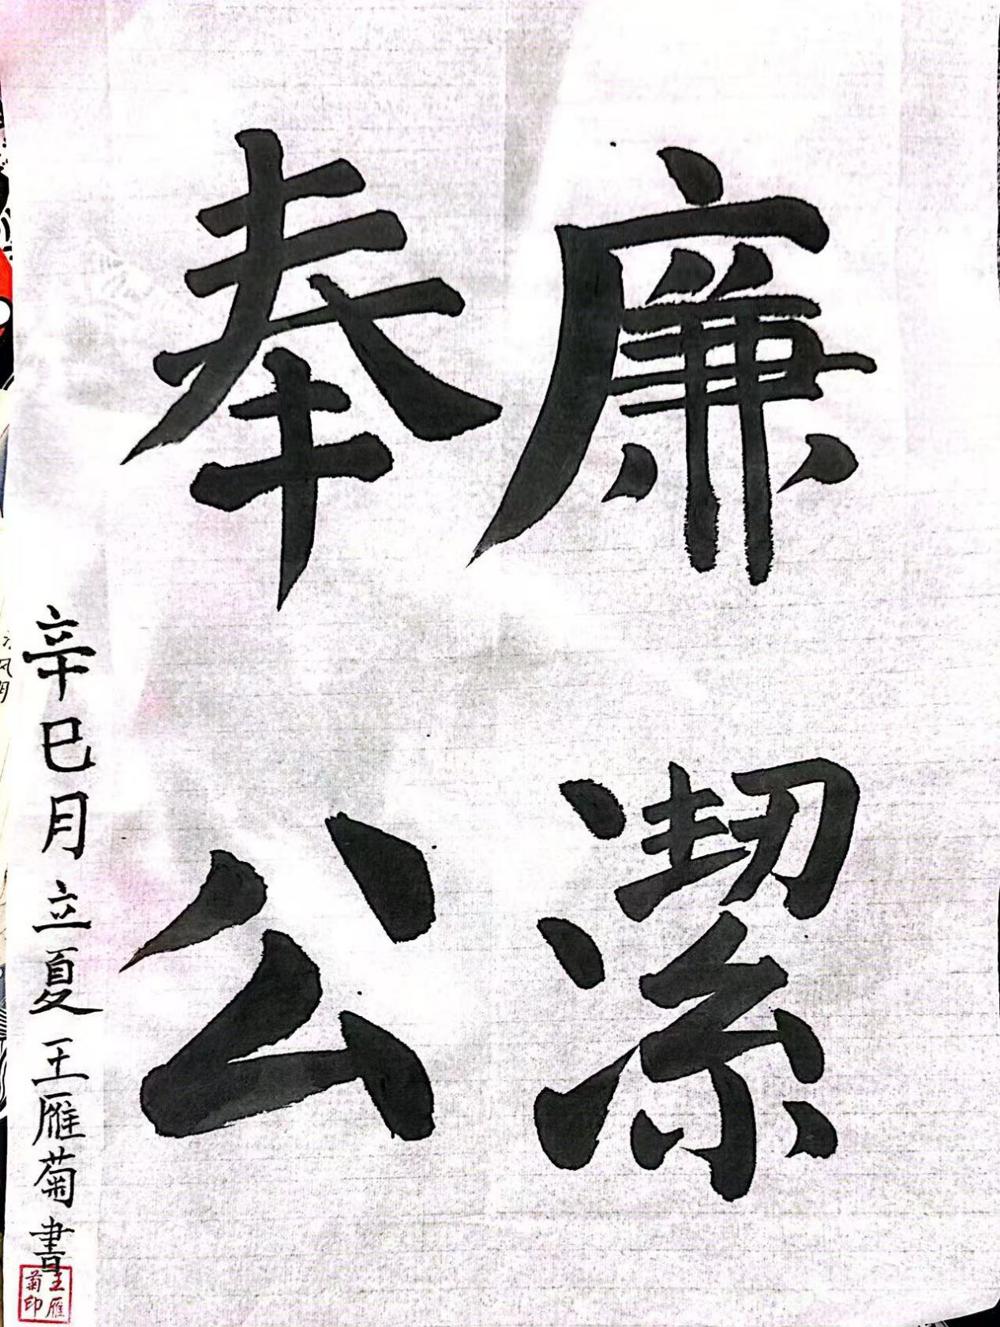 廉潔
奉公
辛巳月立夏王雁菊書
王雁
菊印